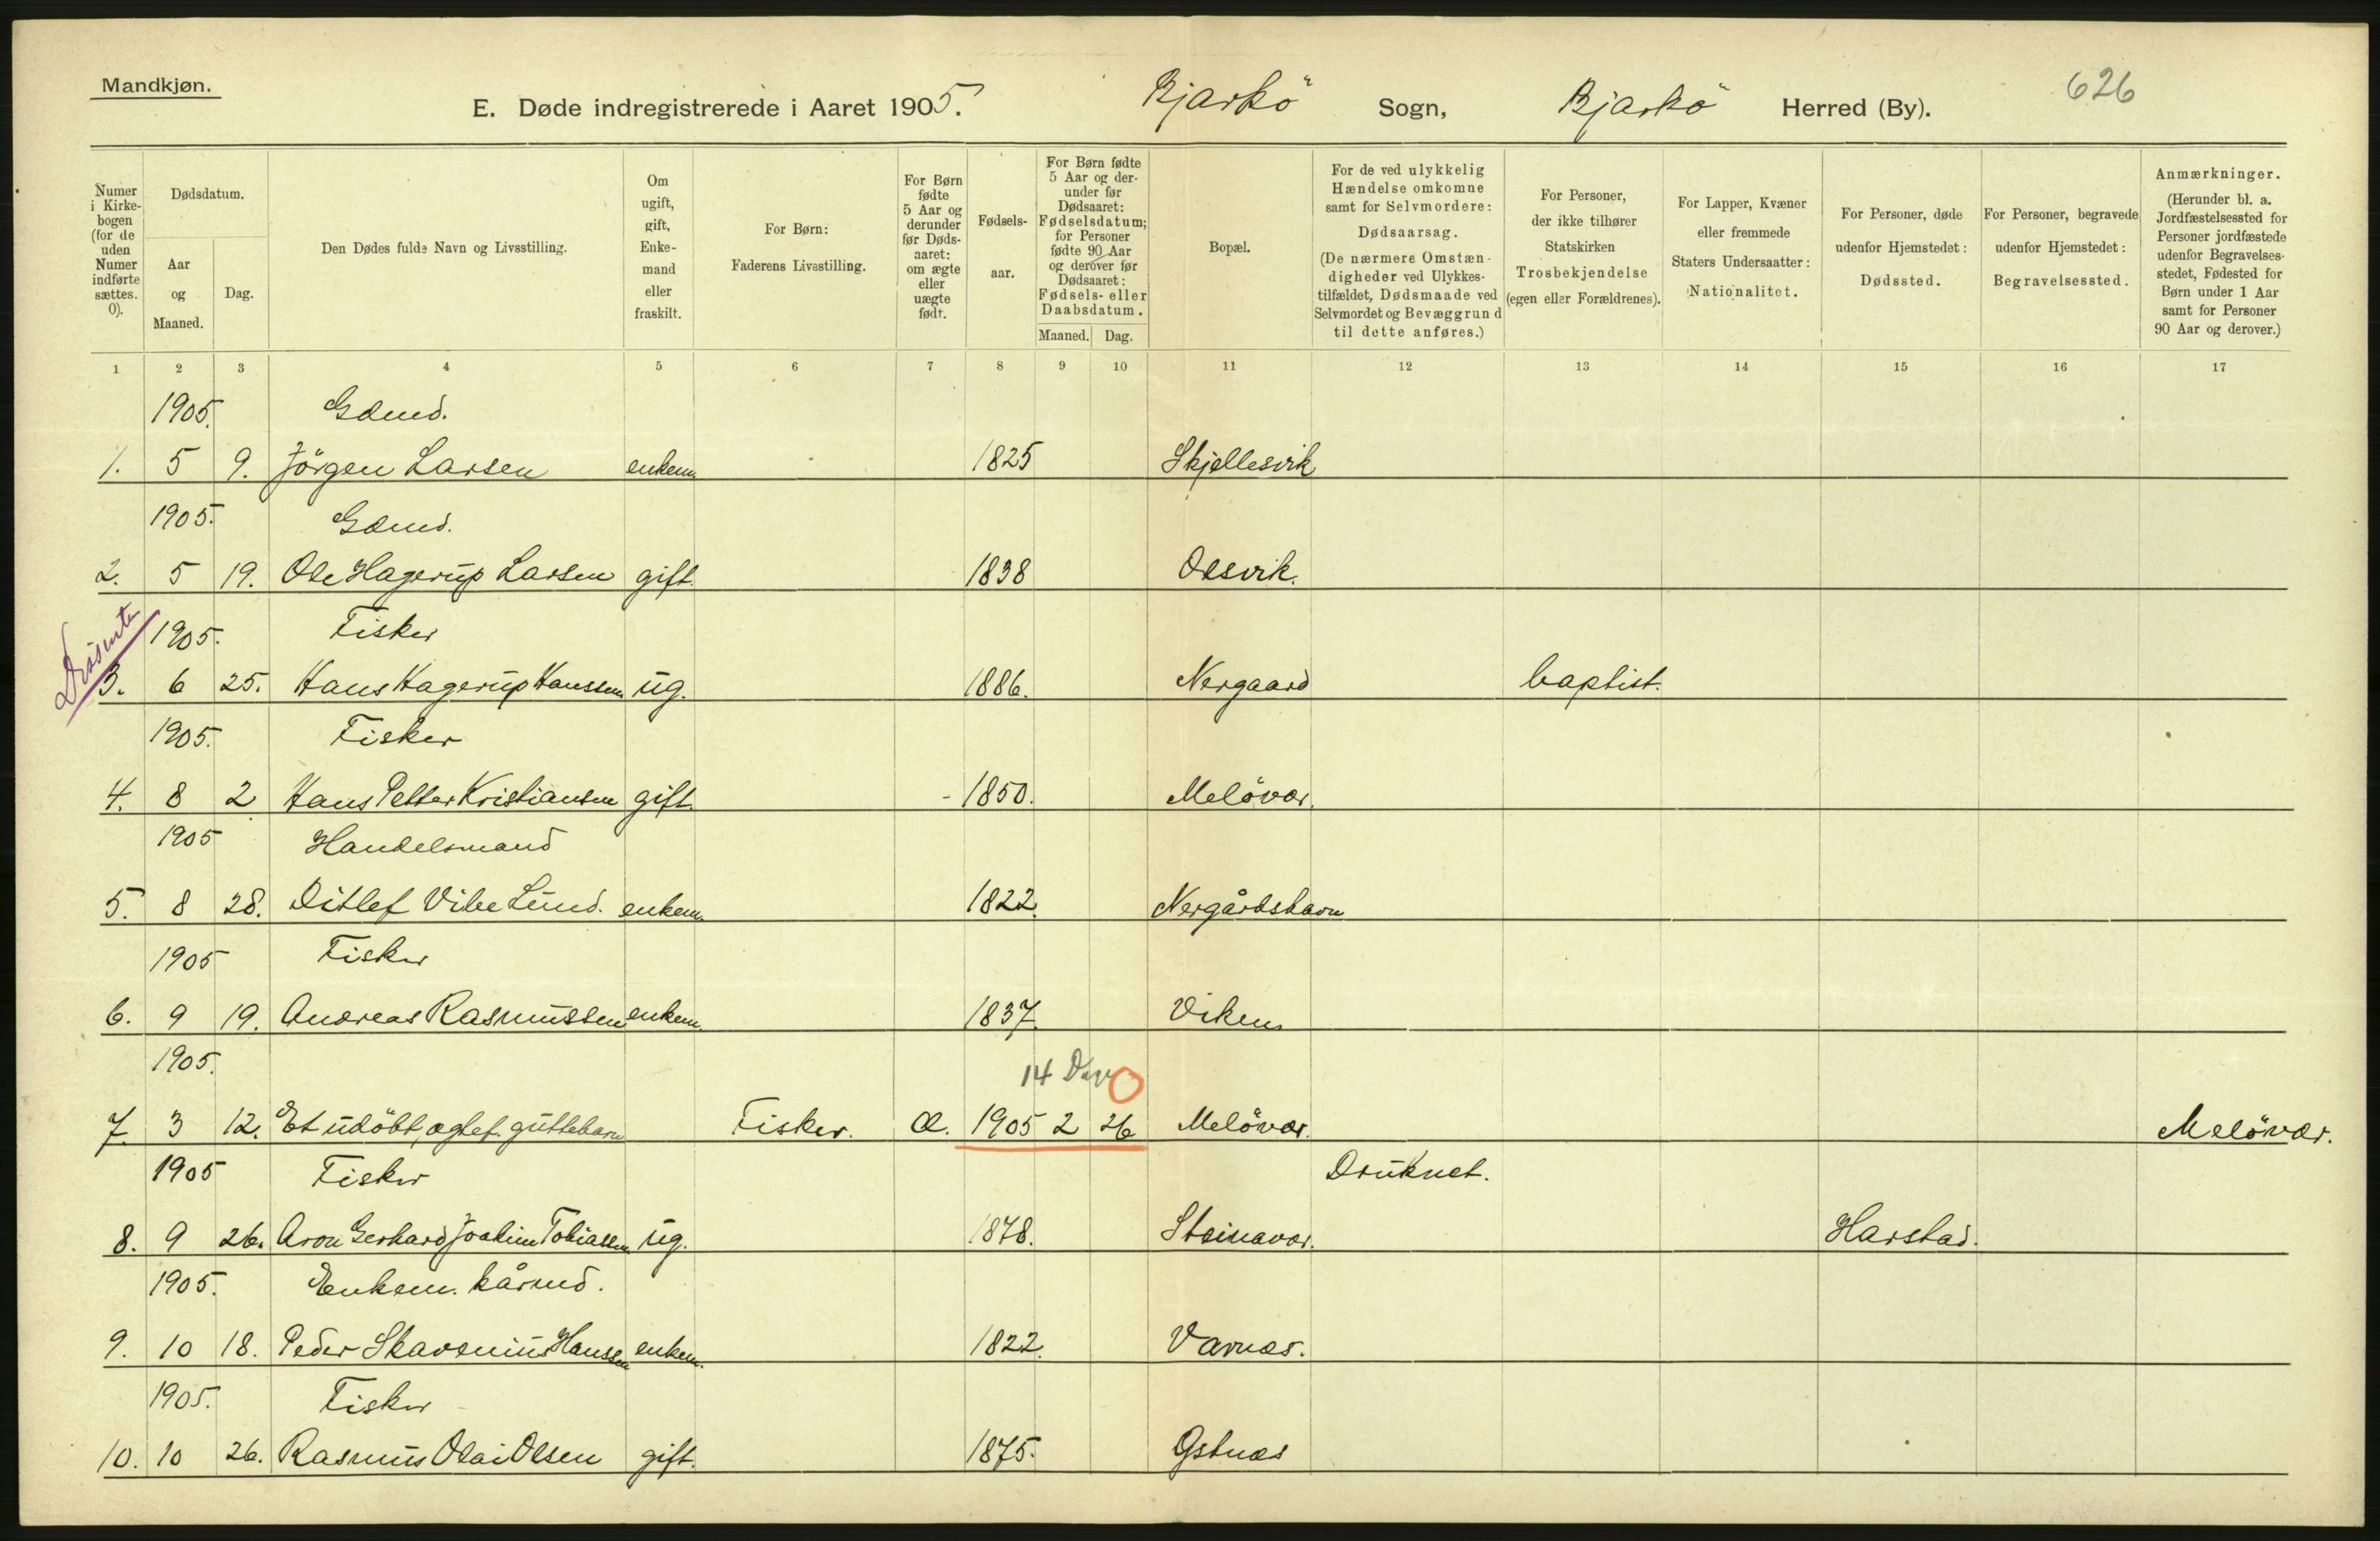 Mandkjøn.
E. Døde indregistrerede i Aaret 1905. Bjarkö Sogn, Bjarkö Herred (By). 626
Numer i Kirke-bogen (for de uden Numer indførte sættes. 0).
Dødsdatum.
Aar og Maaned.
Dag.
Den Dødes fulde Navn og Livsstilling.
Om ugift, gift, Enke-mand eller fraskilt.
For Børn: Faderens Livsstilling.
For Børn fødte 5 Aar og derunder før Døds-aaret: om ægte eller uægte født.
Fødsels-aar.
For Børn fødte 5 Aar og der-under før Dødsaaret: Fødselsdatum; for Personer fødte 90 Aar og derover før Dødsaaret: Fødsels- eller Daabsdatum.
Maaned. Dag.
Bopæl.
For de ved ulykkelig Hændelse omkomne samt for Selvmordere: Dødsaarsag. (De nærmere Omstæn-digheder ved Ulykkes-tilfældet, Dødsmaade ved Selvmordet og Bevæggrund til dette anføres.)
For Personer, der ikke tilhører Statskirken Trosbekjendelse (egen eller Forældrenes).
For Lapper, Kvæner eller fremmede Staters Undersaatter: Nationalitet.
For Personer, døde udenfor Hjemstedet: Dødssted.
For Personer, begravede udenfor Hjemstedet: Begravelsessted.
Anmærkninger. (Herunder bl. a. Jordfæstelsessted for Personer jordfæstede udenfor Begravelses-stedet, Fødested for Børn under 1 Aar samt for Personer 90 Aar og derover.)
1 2 3 4 5 6 7 8 9 10 11 12 13 14 15 16 17
1905. Gdmd.
1. 5 9. Jörgen Larsen enkem. 1825 Skjellesvik
1905. Gdmd.
2. 5 19. Ole Hagerup Larsen gift. 1838 Olsvik.
1905. Fisker
3. 6 25. Hans Hagerup Hanssen ug. 1886. Nergaard baptist.
1905. Fisker
4. 8 2 Hans Petter Kristiansen gift. 1850. Melövær.
1905 Handelsmand
5. 8 28. Ditlef Vibe Lund. enkem. 1822. Nergårdshavn
1905 Fisker
6. 9 19. Andreas Rasmussen enkem. 1837. Viken
1905. 14 Dav
7. 3 12. Et udöbt, ægtef. guttebarn Fisker. Æ. 1905 2 26 Melövær. Melövær.
1905 Fisker Druknet.
8. 9 26. Aron Gerhard Joakim Tobiassen ug. 1878. Steinavær. Harstad.
1905. Enkem. kårmd.
9. 10 18. Peder Skavenius Hanssen enkem. 1822. Varnæs.
1905. Fisker
10. 10 26. Rasmus Olai Olsen gift. 1875. Østnæs